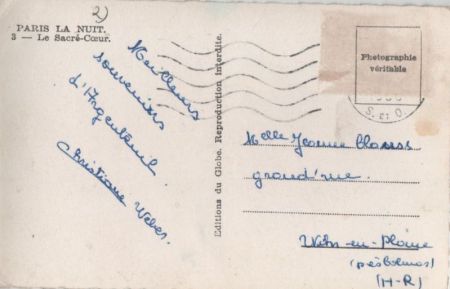 2)
PARIS LA NUIT.
3 — Le Sacré-Cœur.
Meilleurs
souvenirs
d'Argenteuil
Christiane Weber.
Editions du Globe. Reproduction interdite.
Photographie
véritable
S. ET O.
Melle Jeanne
grand'rue.
en-Plaine
(H-R)